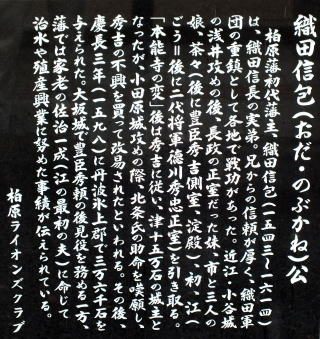 織田信包(おだ・のぶかね)公
柏原藩初代藩主、織田信包(一五四三～一六一四)
は、織田信長の実弟。兄からの信頼が厚く、織田軍
団の重鎮として各地で戦功があった。近江・小谷城
の浅井攻めの後、長政の正室だった妹、市と三人の
娘、茶々(後に豊臣秀吉側室、淀殿)初、江(
ごう＝後に二代将軍徳川秀忠正室)を引き取る。
「本能寺の変」後は秀吉に従い、津十五万石の城主と
なったが、小田原城攻めの際、北条氏の助命を嘆願し、
秀吉の不興を買って改易されたといわれる。その後、
慶長三年(一五九八)に丹波氷上郡で三万六千石を
与えられた。大坂城で豊臣秀頼の後見役を務める一方、
藩では家老の佐治一成(江の最初の夫)に命じて
治水や殖産興業に努めた事績が伝えられている。
柏原ライオンズクラブ